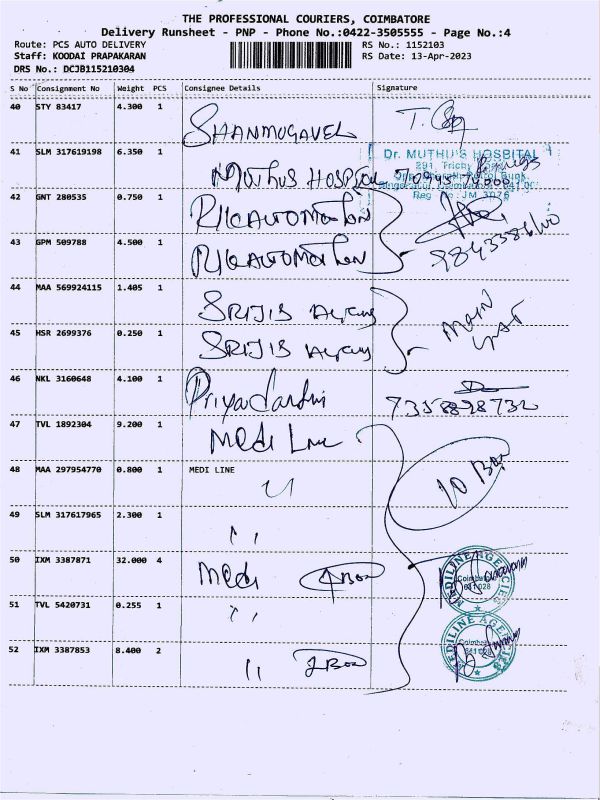 THE PROFESSIONAL COURIERS, COIMBATORE
Delivery Runsheet - PNP - Phone No.:0422-3505555 - Page No.:4
Route: PCS AUTO DELIVERY RS No.: 1152103
Staff: KOODAI PRAPAKARAN RS Date: 13-Apr-2023
DRS No.: DCJB115210304
S No Consignment No Weight PCS Consignee Details Signature
40 STY 83417 4.300 1 SHANMUGAVEL
41 SLM 317619198 6.350 1 MUTHUS HOSPITAL
Dr. MUTHU'S HOSBITAL
291, Trichy Road
42 GNT 280535 0.750 1
43 GPM 509788 4.500 1
9843386100
44 MAA 569924115 1.405 1 SRIJIB
45 HSR 2699376 0.250 1 SRIJIB
46 NKL 3160648 4.100 1 Priyadarshni
7358898732
47 TVL 1892304 9.200 1 Medi Line
48 MAA 297954770 0.800 1 MEDI LINE
10 Box
49 SLM 317617965 2.300 1 ,,
50 IXM 3387871 32.000 4 Medi 4 Box
MEDILINE AGENCIES
Coimbatore
641 028
51 TVL 5420731 0.255 1 ,,
MEDILINE AGENCIES
Coimbatore
641 028
52 IXM 3387853 8.400 2 ,, 2 Box